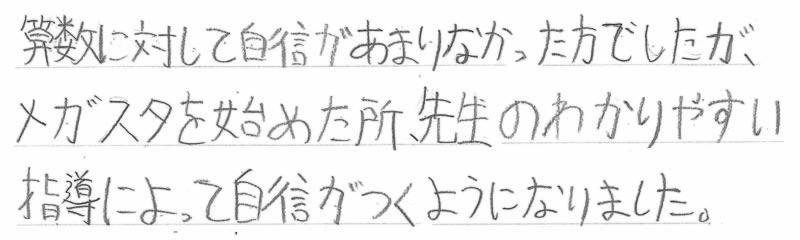 算数に対して自信があまりなかった方でしたが、
メガスタを始めた所、先生のわかりやすい
指導によって自信がつくようになりました。